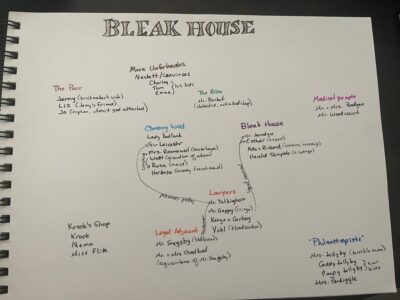 BLEAK HOUSE
More Unfortunates
Neckett/Coavinses
Charley
Tom
Emma
his kids
The Poor
Jenny (brickmaker's wife)
Liz (Jenny's friend)
Jo (orphan,
The Police
Mr. Bucket
(detective,
Medical people
Mr. + Mrs. Badger
Mr. Woodcourt
Chesney Wold
Lady Dedlock
Sir Leicester
Mrs. Rouncewell (housekeeper)
Watt (grandson of above)
Rosa (maid)
Hortense
Bleak House
Mr. Jarndyce
Esther
Ada + Richard
Harold Skimpole (a sponge)
Lawyers
Mr. Tulkinghorn
Mr. Guppy (cringe)
Kenge + Carboy
Vohl
Krook's Shop
Krook
Nemo
Miss Flite
Legal Adjacent
Mr. Snagsby (stationer)
Mr. + Mrs. Chadband
(acquaintances of Mr. Snagsby)
"Philanthropists"
Mrs. Jellyby
Caddy Jellyby
Peepy Jellyby
her kids
Mrs. Pardiggle